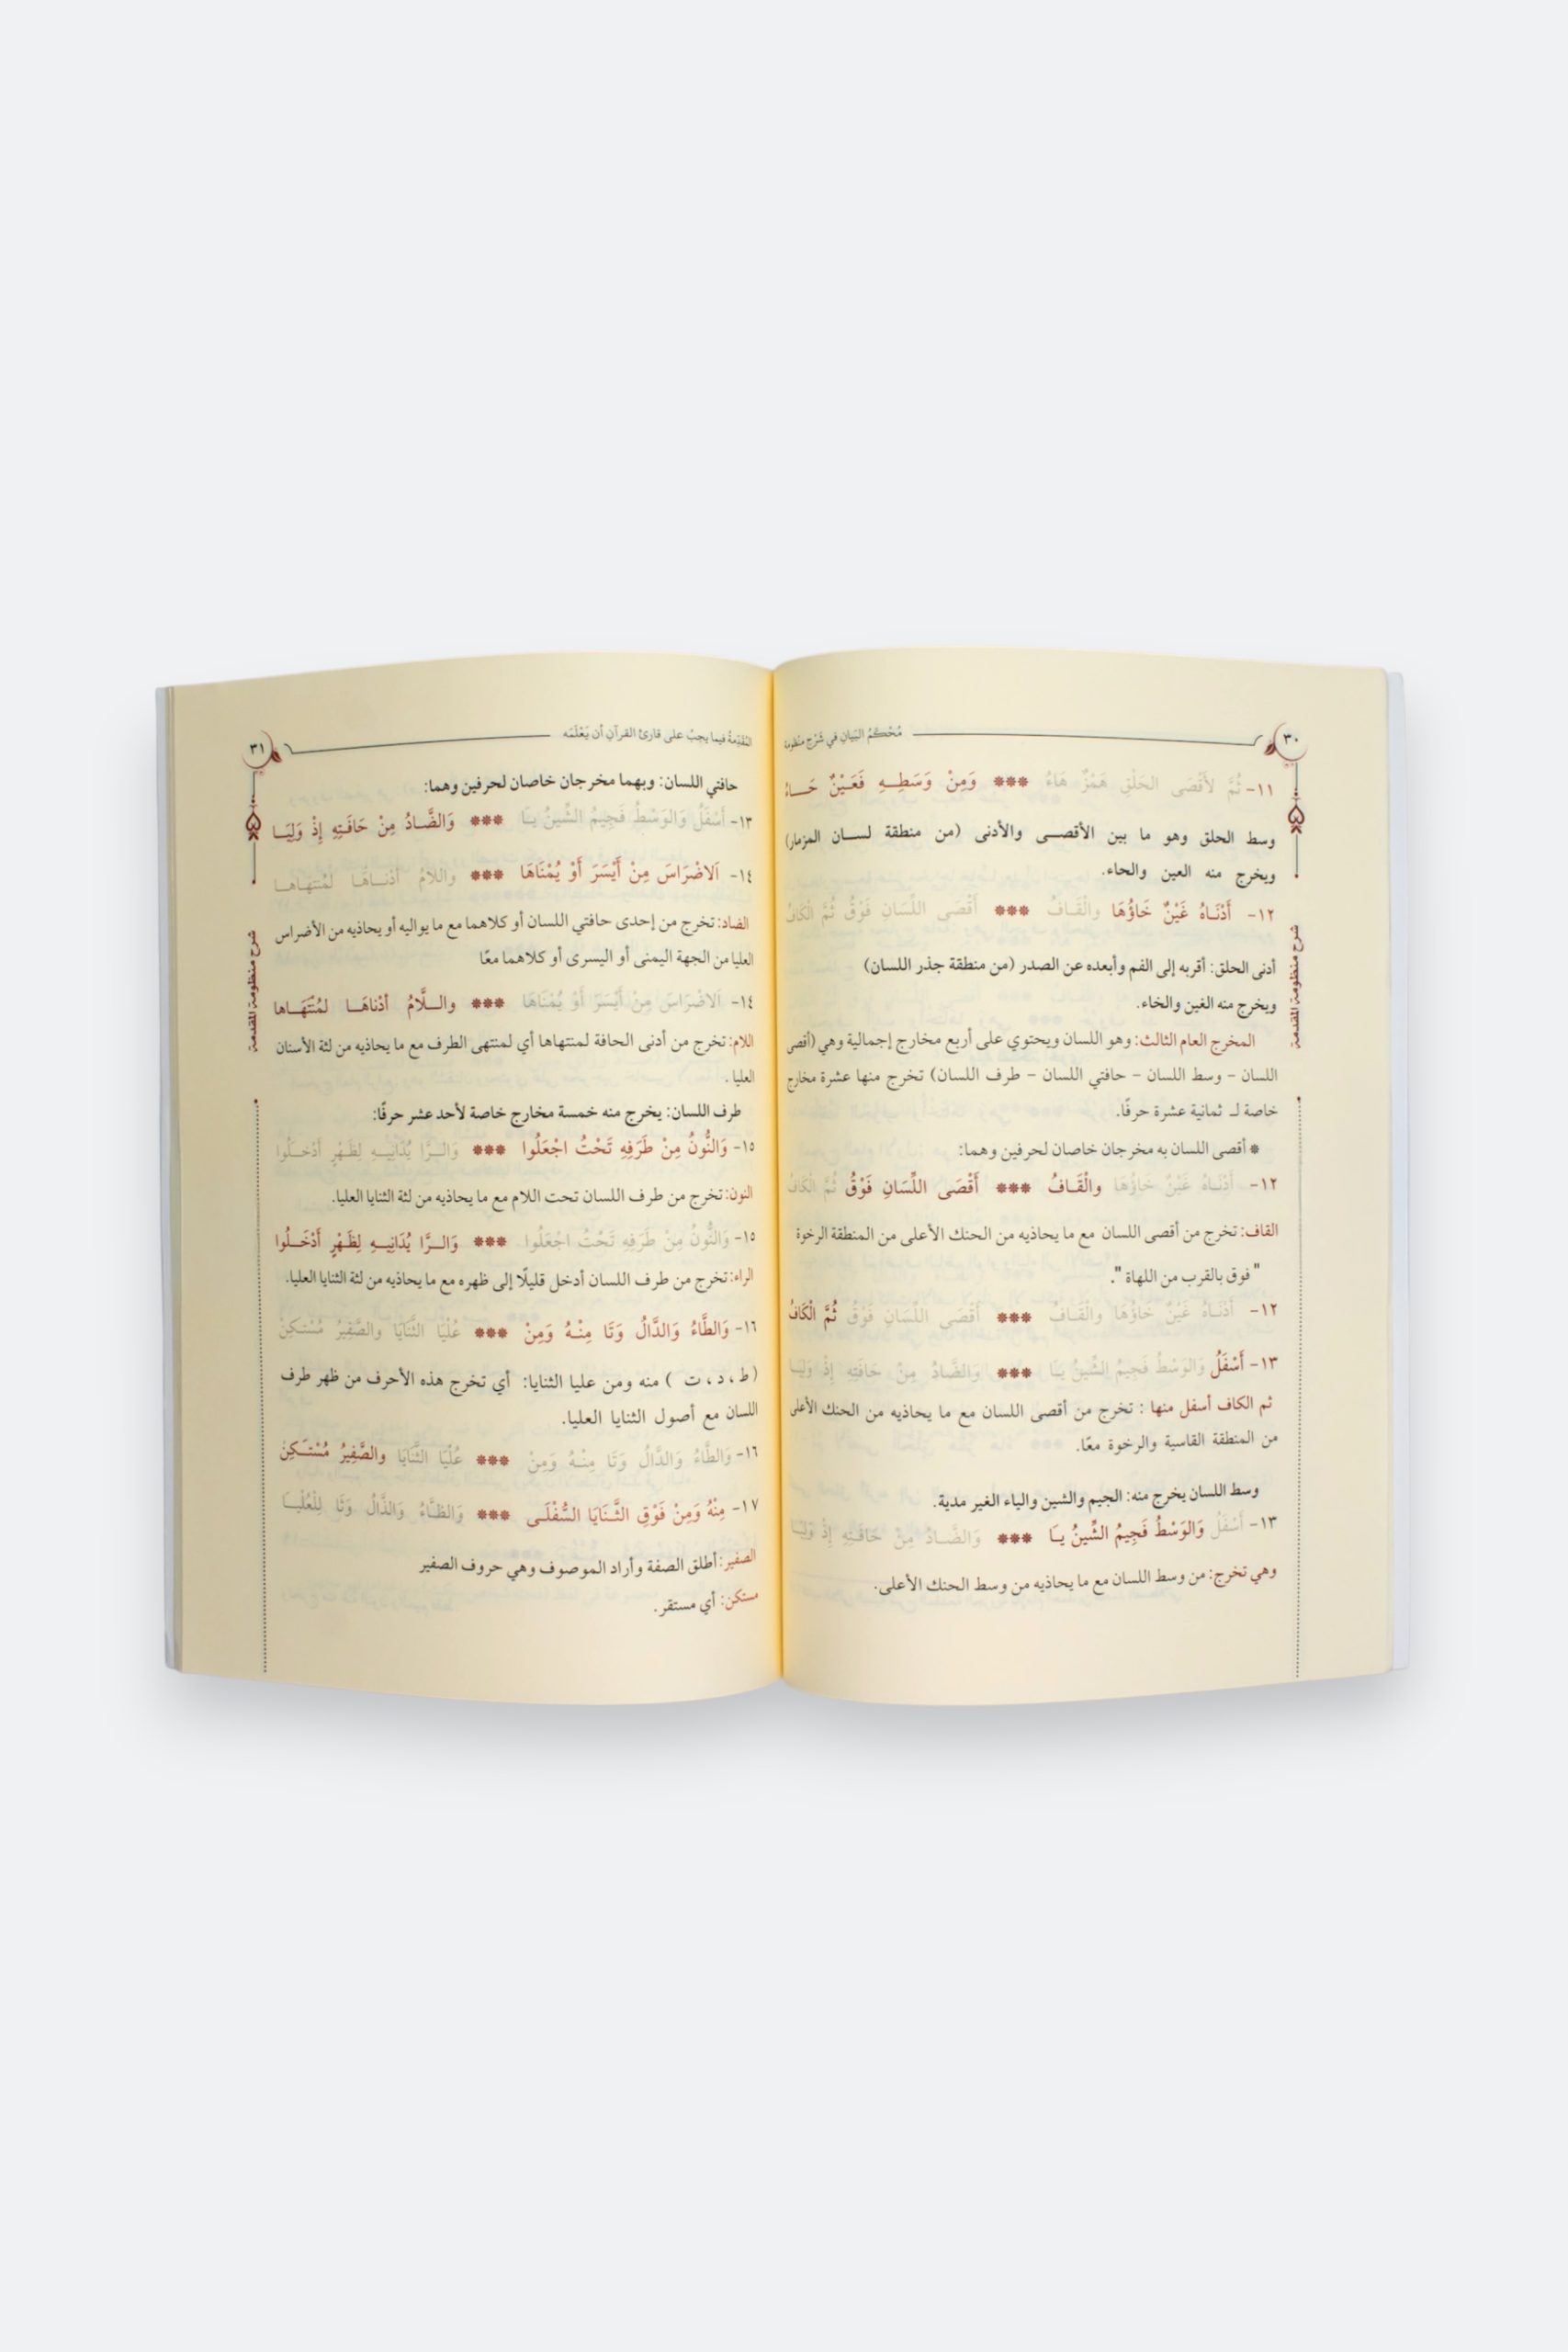 ٣٠
مُحْكَمُ البَيانِ في شَرْحِ منظومة
١١- ثُمَّ لأَقْصَى الحَلْقِ هَمْزٌ هَاءُ *** وَمِنْ وَسَطِـهِ فَعَـيْنٌ حَـاءُ
وسط الحلق وهو ما بين الأقصـى والأدنى (من منطقة لسـان المزمار)
ويخرج منه العين والحاء.
١٢- أَدْنَـاهُ غَيْنٌ خَاؤُهَا والْقَـافُ *** أَقْصَى اللِّسَانِ فَوْقُ ثُمَّ الْكَافُ
أدنى الحلق: أقربه إلى الفم وأبعده عن الصدر (من منطقة جذر اللسان)
ويخرج منه الغين والخاء.
المخرج العام الثالث: وهو اللسان ويحتوي على أربع مخارج إجمالية وهي (أقصى
اللسان – وسط اللسان – حافتي اللسان – طرف اللسان) تخرج منها عشرة مخارج
خاصة لـ ثمانية عشرة حرفًا.
* أقصى اللسان به مخرجان خاصان لحرفين وهما:
١٢- أَدْنَـاهُ غَيْنٌ خَاؤُهَا والْقَـافُ *** أَقْصَى اللِّسَانِ فَوْقُ ثُمَّ الْكَافُ
القاف: تخرج من أقصى اللسان مع ما يحاذيه من الحنك الأعلى من المنطقة الرخوة
" فوق بالقرب من اللهاة ".
١٢- أَدْنَـاهُ غَيْنٌ خَاؤُهَا والْقَـافُ *** أَقْصَى اللِّسَانِ فَوْقُ ثُمَّ الْكَافُ
١٣- أَسْفَلُ وَالوَسْطُ فَجِيمُ الشِّينُ يَـا *** وَالضَّـادُ مِنْ حَافَتِهِ إِذْ وَلِيَـا
ثم الكاف أسفل منها : تخرج من أقصى اللسان مع ما يحاذيه من الحنك الأعلى
من المنطقة القاسية والرخوة معًا.
وسط اللسان يخرج منه: الجيم والشين والياء الغير مدية.
١٣- أَسْفَلُ وَالوَسْطُ فَجِيمُ الشِّينُ يَـا *** وَالضَّـادُ مِنْ حَافَتِهِ إِذْ وَلِيَـا
وهي تخرج: من وسط اللسان مع ما يحاذيه من وسط الحنك الأعلى.
شرح منظومة المقدمة
٣١
المُقَدِّمةُ فيما يجبُ على قارئ القرآنِ أن يَعْلَمَه
حافتي اللسان: وبهما مخرجان خاصان لحرفين وهما:
١٣- أَسْفَلُ وَالوَسْطُ فَجِيمُ الشِّينُ يَـا *** وَالضَّـادُ مِنْ حَافَتِهِ إِذْ وَلِيَـا
١٤- اَلاضْرَاسَ مِنْ أَيْسَرَ أَوْ يُمْنَاهَا *** واللَّامُ أَدْنَـاهَـا لمُنْتَهَـاهَـا
الضاد: تخرج من إحدى حافتي اللسان أو كلاهما مع ما يواليه أو يحاذيه من الأضراس
العليا من الجهة اليمنى أو اليسرى أو كلاهما معًا
١٤- اَلاضْرَاسَ مِنْ أَيْسَرَ أَوْ يُمْنَاهَا *** والـلَّامُ أَدْناهَـا لمُنْتَهَـاها
اللام: تخرج من أدنى الحافة لمنتهاها أي لمنتهى الطرف مع ما يحاذيه من لثة الأسنان
العليا .
طرف اللسان: يخرج منه خمسة مخارج خاصة لأحد عشر حرفًا:
١٥- وَالنُّونُ مِنْ طَرَفِهِ تَحْتُ اجْعَلُوا *** وَالـرَّا يُدَانِيـهِ لِظَـهْرٍ أَدْخَـلُوا
النون: تخرج من طرف اللسان تحت اللام مع ما يحاذيه من لثة الثنايا العليا.
١٥- وَالنُّونُ مِنْ طَرَفِهِ تَحْتُ اجْعَلُوا *** وَالـرَّا يُدَانِيـهِ لِظَـهْرٍ أَدْخَـلُوا
الراء: تخرج من طرف اللسان أدخل قليلًا إلى ظهره مع ما يحاذيه من لثة الثنايا العليا.
١٦- وَالطَّاءُ وَالدَّالُ وَتَا مِنْـهُ وَمِنْ *** عُلْيَا الثَّنَايَا والصَّفِيرُ مُسْتَـكِنْ
(ط ، د ، ت ) منه ومن عليا الثنايا: أي تخرج هذه الأحرف من ظهر طرف
اللسان مع أصول الثنايا العليا.
١٦- وَالطَّاءُ وَالدَّالُ وَتَا مِنْـهُ وَمِنْ *** عُلْيَا الثَّنَايَا والصَّفِيرُ مُسْتَـكِنْ
١٧- مِنْهُ وَمِنْ فَوْقِ الثَّـنَايَا السُّفْلَـى *** وَالظـَّاءُ وَالذَّالُ وَثَا لِلْعُلْيَـا
الصفير: أطلق الصفة وأراد الموصوف وهي حروف الصفير
مستكن: أي مستقر.
شرح منظومة المقدمة